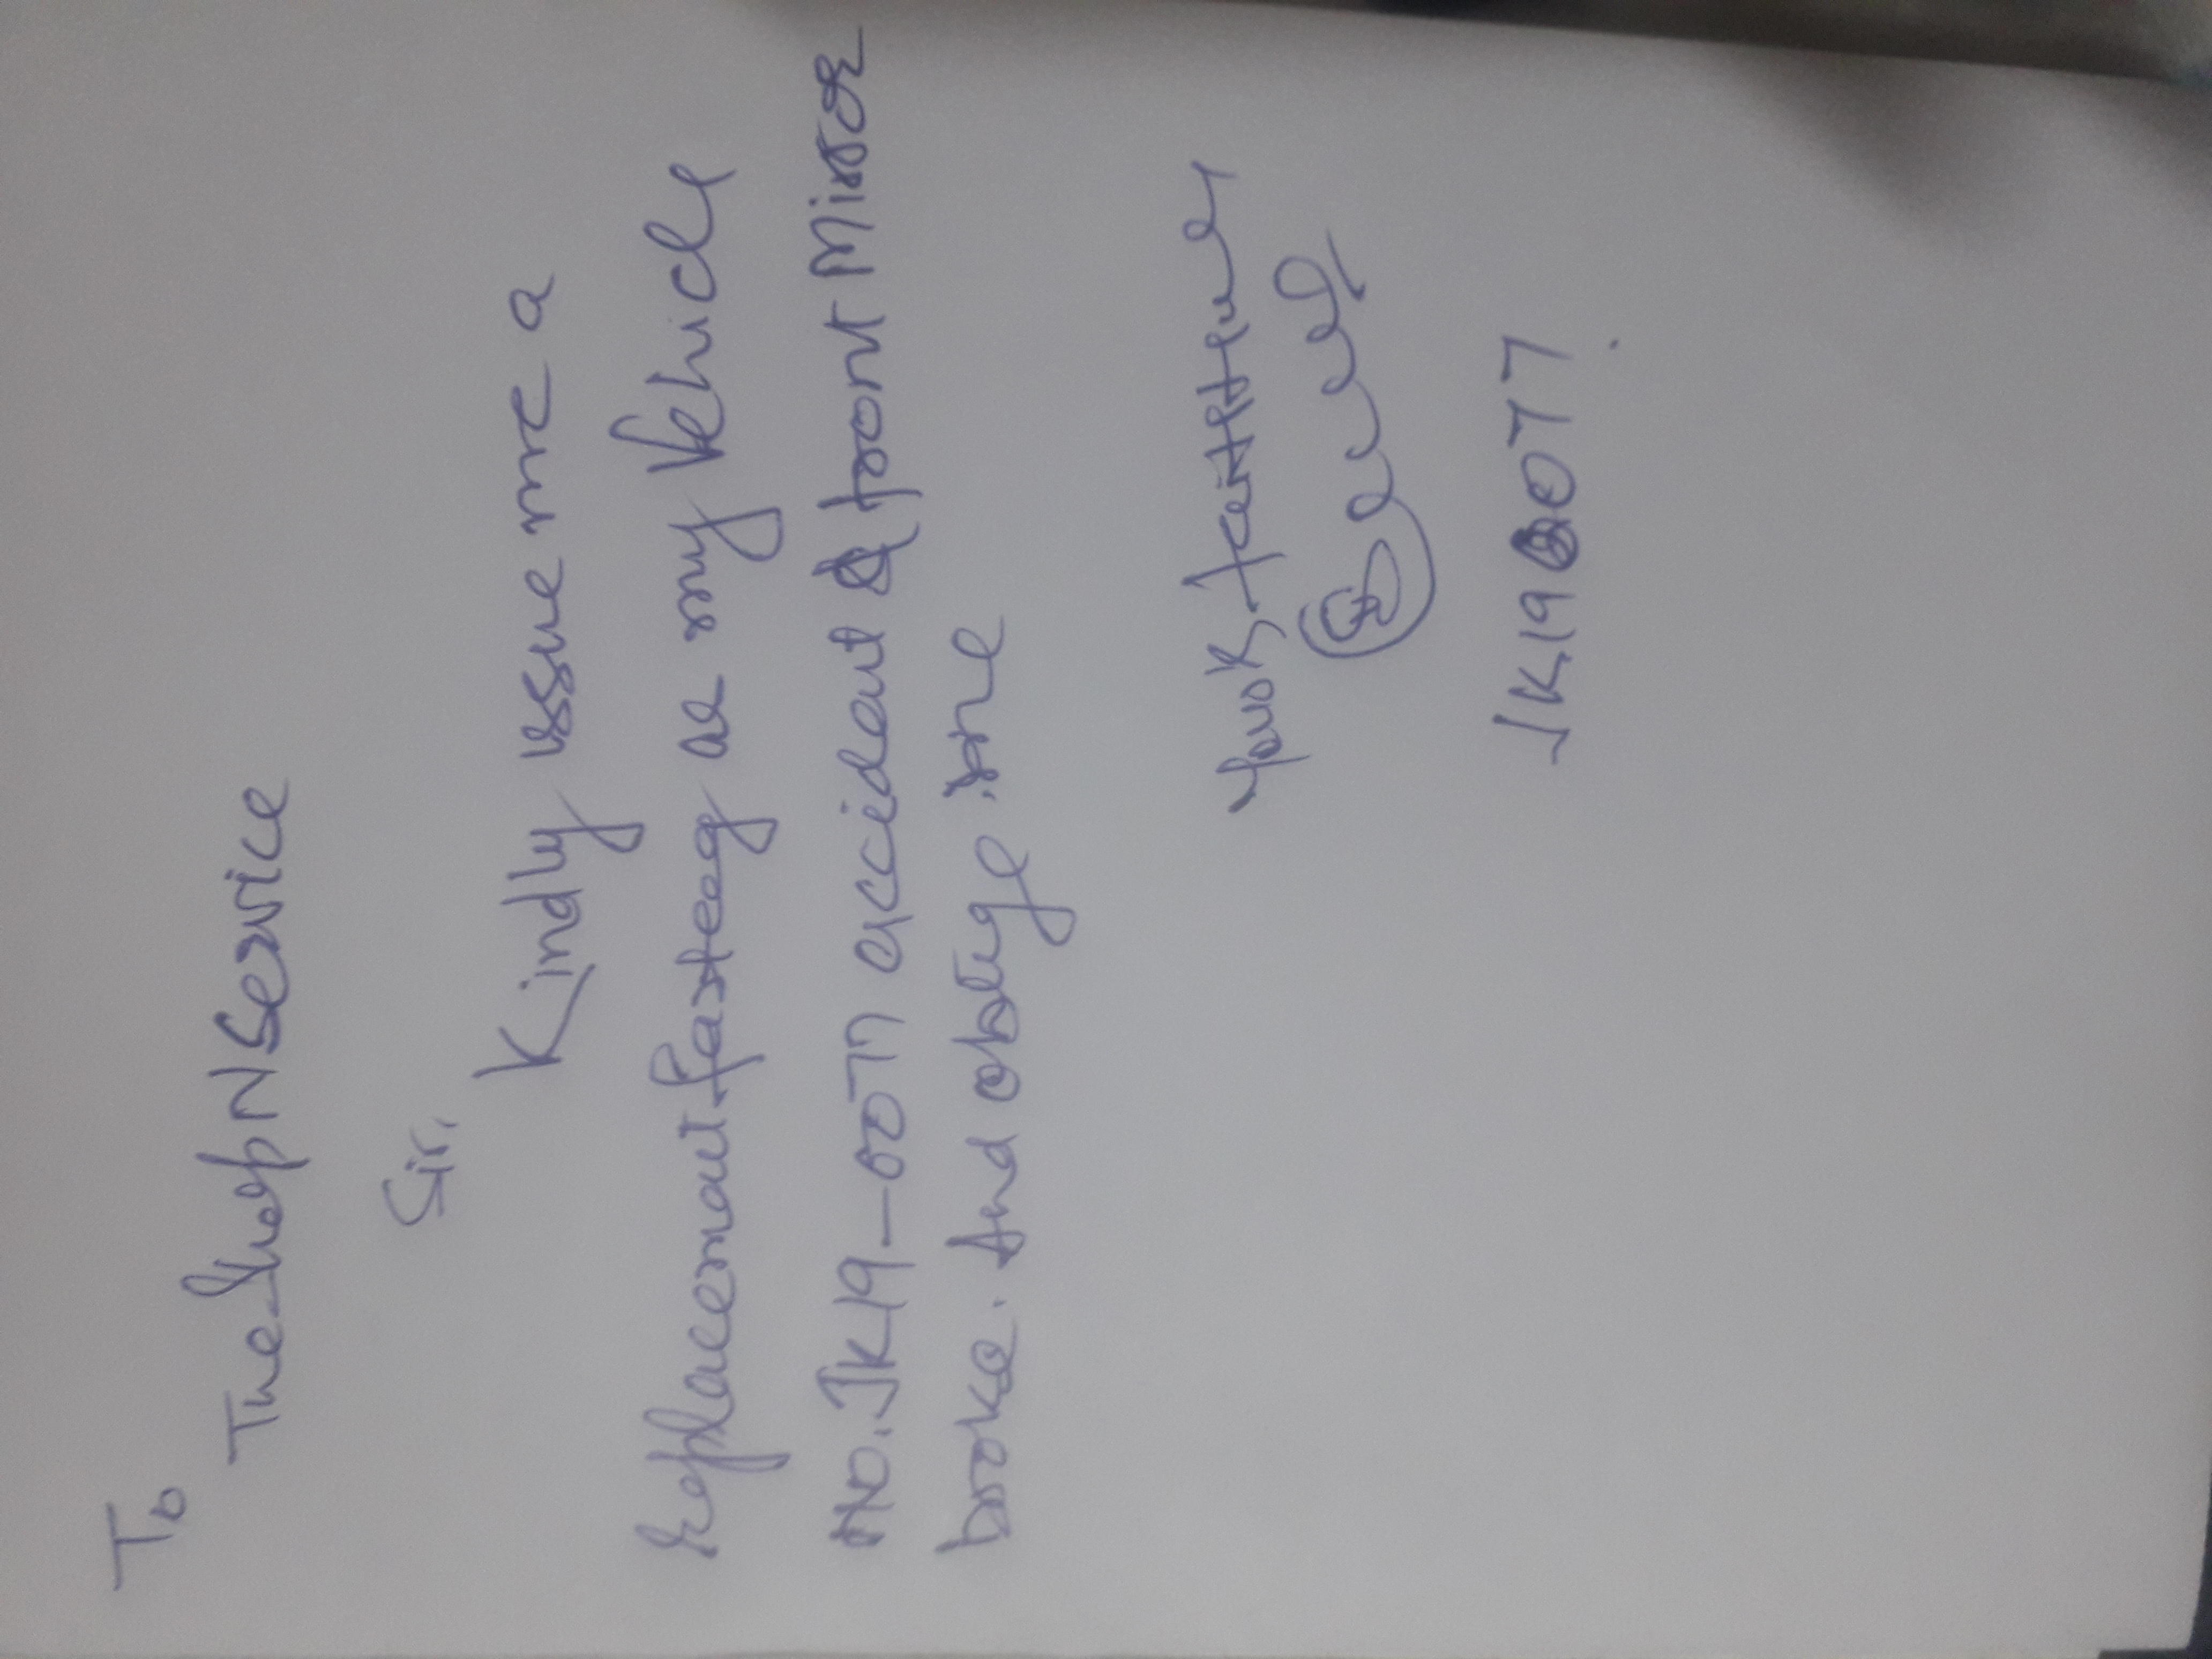 To
The ShopNService
Sir,
Kindly issue me a
replacemant fasteeg as my Vehicle
No. JK19-0077 accident & front Miror
broke. And oblige me
Your faithfully
JK190077